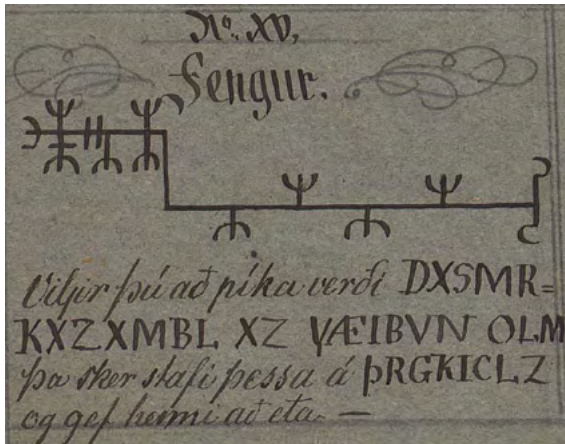 No. XV.
Fengur.
Viljir þú að píka verði DXSMR=
KXZXMBL XZ VÆIBVN OLM
þa sker stafi þessa á þRGKICLZ
og gef henni að eta. —